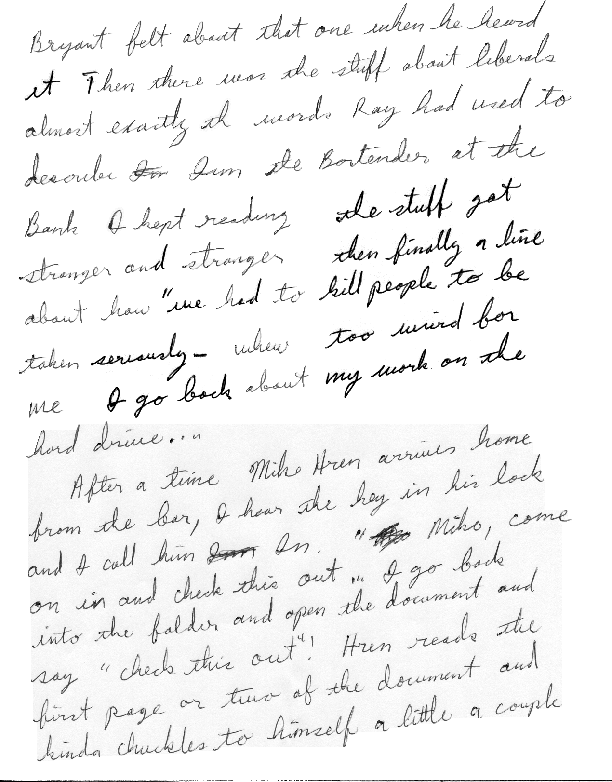 Bryant felt about that one when he heard
it Then there was the stuff about liberals
almost exactly th words Ray had used to
describe Jim the Bartender at the
Bank I kept reading the stuff got
stranger and stranger then finally a line
about how "we had to kill people to be
taken seriously - whew too weird for
me I go back about my work on the
hard drive..."
After a time Mike Hren arrives home
from the bar, I hear the key in his lock
and I call him In. " Mike, come
on in and check this out ... I go back
into the folder and open the document and
say "check this out"! Hren reads the
first page or two of the document and
kinda chuckles to himself a little a couple